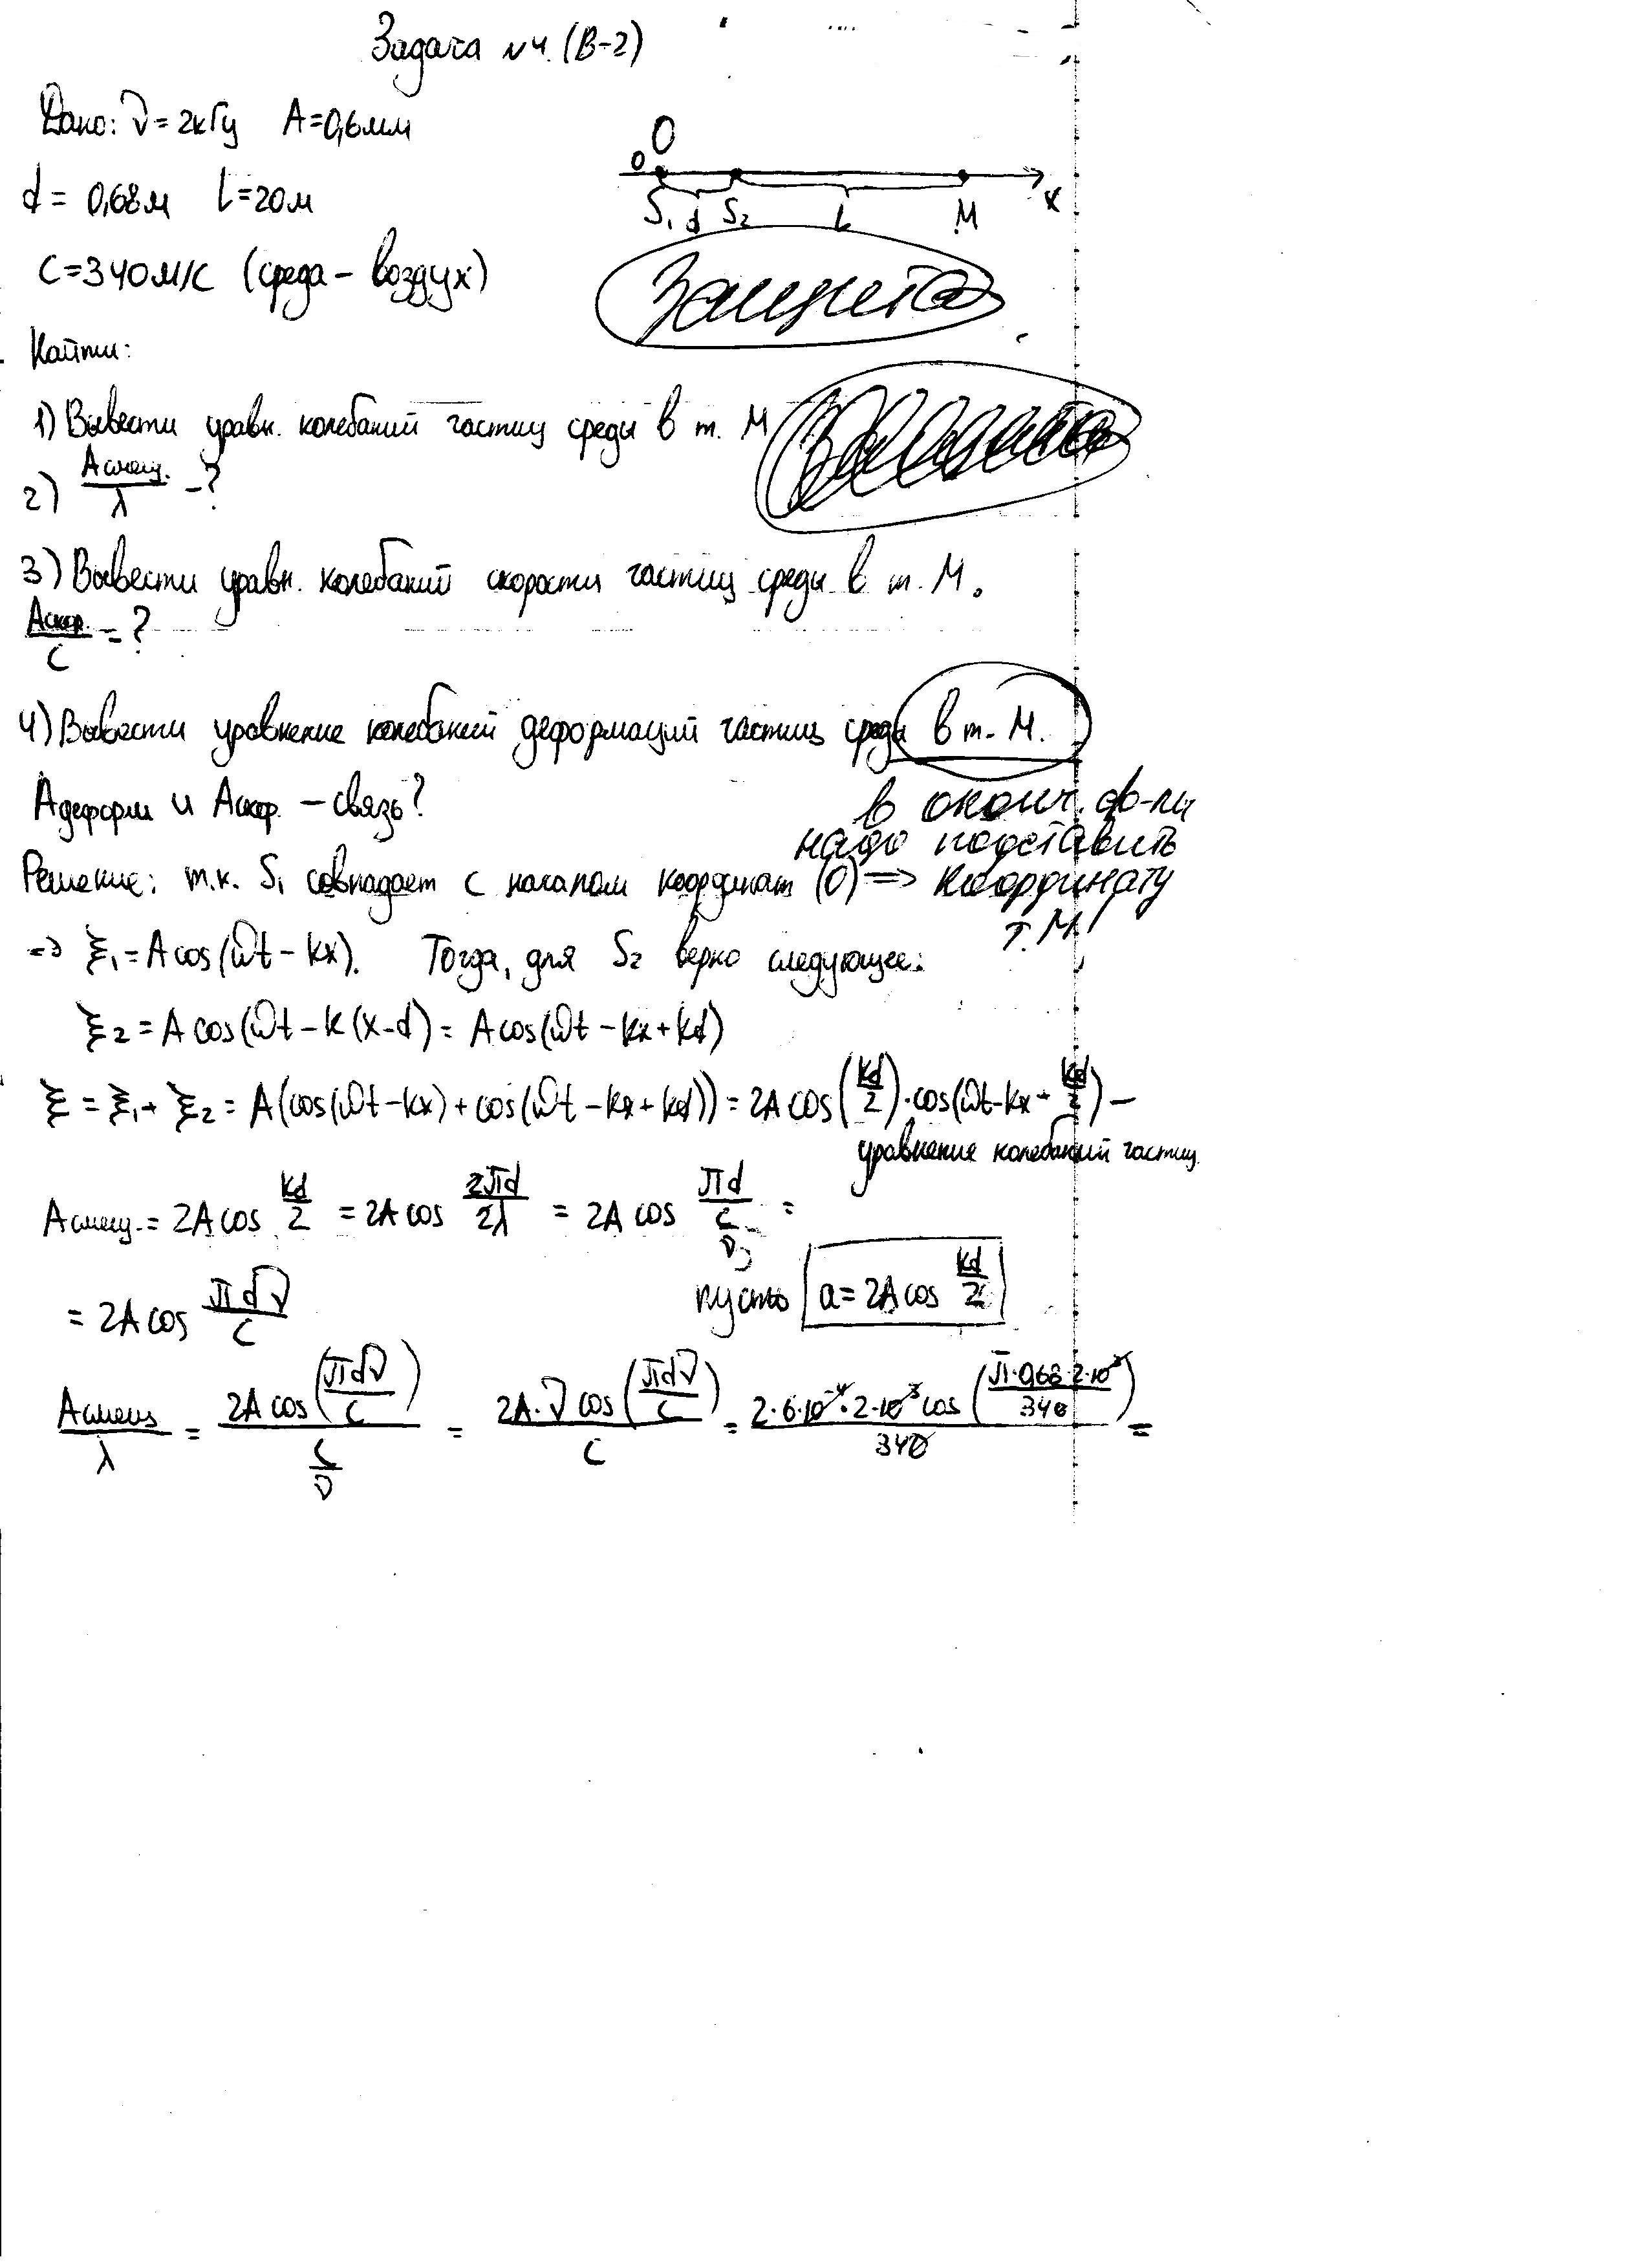 Задача №4. (В-2)
Дано: ν = 2кГц A=0,6мм
d = 0,68м L=20м
C=340м/с (среда – воздух)
0 O
S₁ d S₂ L M x
Защита
Найти:
1) Вывести уравн. колебаний частиц среды в т. М
2) Aсмещ./λ – ?
3) Вывести уравн. колебаний скорости частиц среды в т. М.
Aскор./C = ?
4) Вывести уравнение колебаний деформаций частиц среды в т. М.
Aдеформ и Aскор. – связь?
в оконч. ф-лы
надо подставить
координату
т. М!
Решение: т.к. S₁ совпадает с началом координат (0) =>
=> ξ₁ = A cos(ωt – kx). Тогда, для S₂ верно следующее:
ξ₂ = A cos(ωt – k(x-d) = A cos(ωt – kx + kd)
ξ = ξ₁ + ξ₂ = A(cos(ωt – kx) + cos(ωt – kx + kd)) = 2A cos(kd/2)·cos(ωt-kx + kd/2) –
уравнение колебаний частиц.
Aсмещ. = 2A cos kd/2 = 2A cos 2πd/2λ = 2A cos πd/(C/ν) =
= 2A cos πdν/C пусть a = 2A cos kd/2
Aсмещ/λ = 2A cos(πdν/C)/(C/ν) = 2A·ν cos(πdν/C)/C = 2·6·10⁻⁴·2·10³ cos(π·0,68·2·10³/340)/340 =